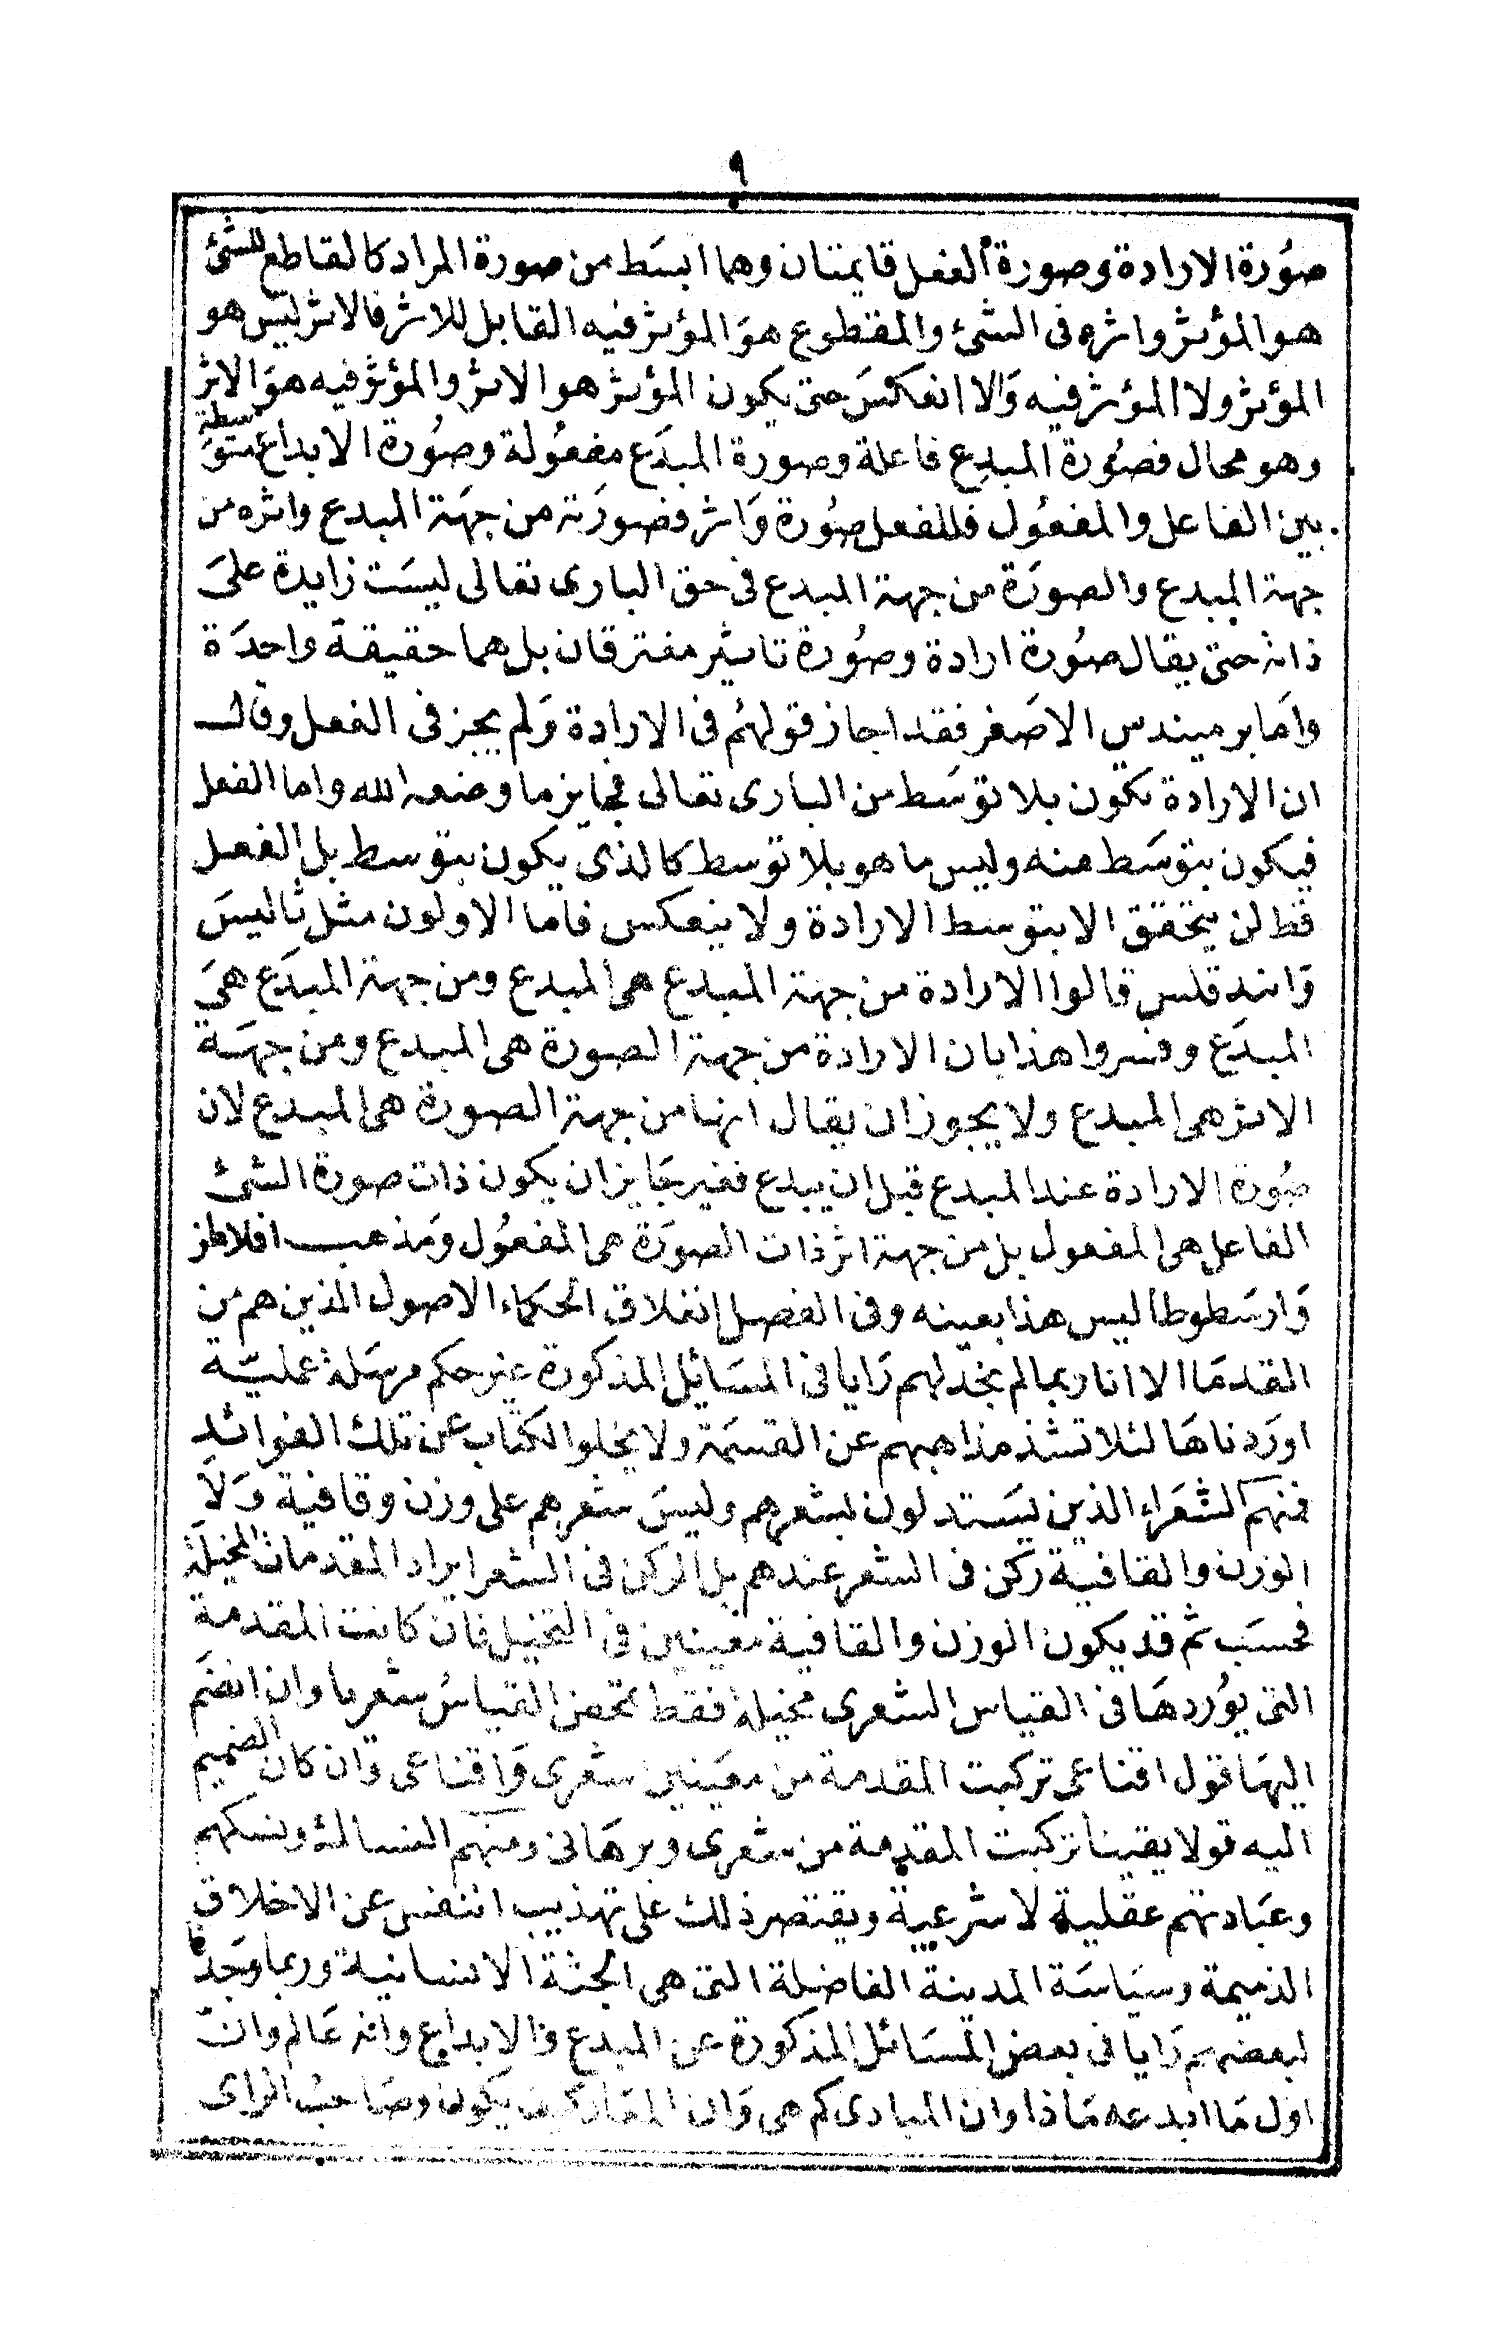 ٩
صُورة الارادة وصورة الفعل قايمتان وهما ابسَط من صورة المراد كالقاطع للشئ
هو المؤثر واثره فى الشئ والمقطوع هوَ المؤثر فيه القابل للاثر فالاثر ليس هو
المؤثر ولا المؤثر فيه وَالا انعكسَ حتى يكون المؤثر هو الاثر والمؤثر فيه هوَ الاثر
وهو محال فصُورة المبدِع فاعلة وصورة المبدَع مفعُولة وصُورة الابداع متوَسطة
بين الفاعل والمفعُول فللفعل صُورة وَاثر فصورَته من جهَة المبدع واثره من
جهة المبدع والصورَة من جهة المبدع فى حق البارى تعالى ليسَت زايدة علىَ
ذاته حتى يقال صُورة ارادة وصُورة تاثير مفترقان بل هما حقيقة واحدَة
وامَا برميندس الاصَغر فقد اجاز قولهُم فى الارادة وَلم يجز فى الفعل وقال
ان الارادة تكون بلا توسَط من البارى تعالى فجايز ما وضعه الله واما الفعل
فيكون بتوسَط منه وليس ما هو بلا توسط كالذى يكون بتوسط بل الفعل
قط لن يتحقق الا بتوسط الارادة ولا ينعكس فاما الاولون مثل ثاليسَ
وَانبدقلس قالوا الارادة من جهة المبدع هى المبدع ومن جهة المبدَع هىَ
المبدَع وفسروا هذا بان الارادة من جهة الصورة هى المبدع ومن جهَة
الاثر هى المبدع ولا يجوز ان يقال انها من جهة الصورة هى المبدع لان
صُورة الارادة عند المبدع قبل ان يبدع فغير جَايز ان يكون ذات صورة الشئ
الفاعل هى المفعول بل من جهة اثر ذات الصورَة هى المفعُول ومَذهب افلاطن
وَارسَطوطاليس هذا بعينه وفى الفصل انغلاق الحكماء الاصول الذين هم من
القدمَا الا انا ربما لم نجد لهم رَايا فى المسَائل المذكورة غير حكم مرسَلة عمليّة
اورَدناهَا لئلا تشذ مذاهبهم عن القسمَة ولا يخلو الكتاب عن تلك الفوائد
فمنهم الشعَراء الذين يسَتدلون بشعرهم وليسَ شعرهم على وزن وقافية وَلَا
الوزن والقافية ركن فى الشعر عندهم بل الركن فى الشعر ايراد المقدمات المخيلَة
فحسَب ثم قد يكون الوزن والقافية معينين فى التخيل فان كانت المقدمة
التى يوُردهَا فى القياس الشعرى مخيلة فقط تمحض القياسُ شعريا وان انضَم
اليهَا قول اقناعى تركبت المقدمة من معينين شعرى وَاقناعى وَان كان الضميم
اليه قولا يقينا تركبت المقدمة من شعرى وبرهَانى ومنهم النسالة ونسكهم
وعبَادتهم عقلية لا شرعية ويقتصر ذلك على تهذيب النفس عن الاخلاق
الذميمة وسيَاسَة المدينة الفاضلة التى هى الجثة الانسانية وربما وجَدنا
لبعضهم رَايا فى بعض المسَائل المذكورة عن المبدع والابداع وانه عَالم وانّ
اول مَا ابدعه مَاذا وان المبادى كم هى وَان المعَاد كيف يكون وصَاحبُ الراى